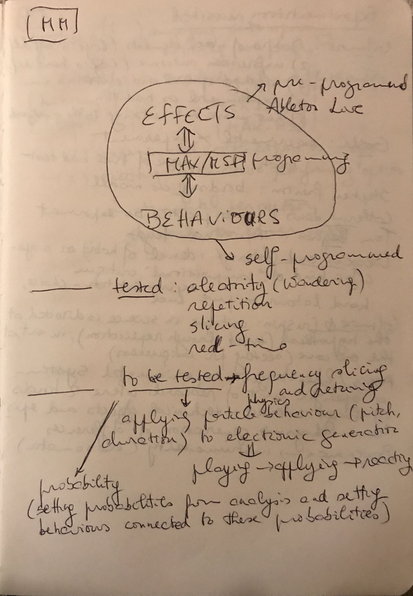 MM
pre-programmed
Ableton Live
EFFECTS
MAX/MSP programming
BEHAVIOURS
self-programmed
tested: aleatrity (wandering)
repetition
slicing
real-time
to be tested → frequency slicing
and detuning
physics
applying particle behaviour (pitch,
duration) to electronic generative
playing → applying → reacting
probability
(setting probabilities from analysis and setting
behaviours connected to these probabilities)